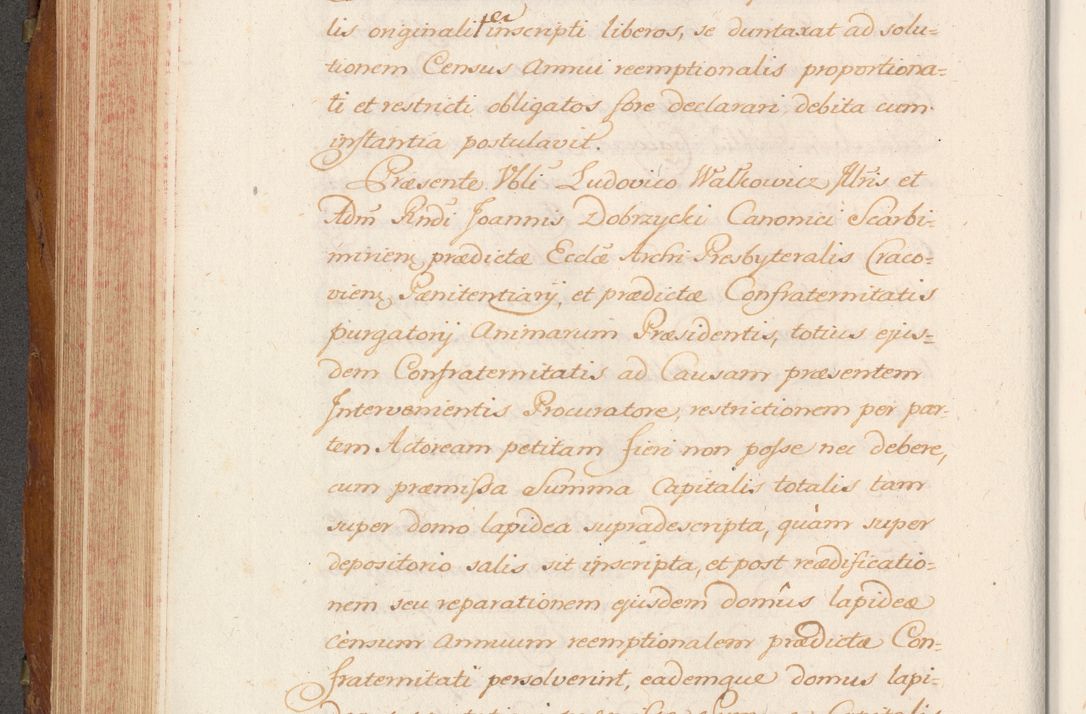 lis originaliter inscripti liberos, se duntaxat ad solu=
tionem Census Annui reemptionalis proportiona=
ti et restricti obligatos fore declarari debita cum
instantia postulavit.
Præsente Nbli Ludovico Walkowicz Illris et
Adm Rndi Joannis Dobrzycki Canonici Scarbi=
mirien, prædictæ Ecclæ Archi-Presbyteralis Craco=
vien, Pænitentiarij, et prædictæ Confraternitatis
purgatorij Animarum Præsidentis, totius ejus=
dem Confraternitatis ad Causam præsentem
Intervenientis Procuratore, restrictionem per par=
tem Actoream petitam fieri non posse nec debere,
cum præmissa Summa Capitalis totalis tam
super domo lapidea supradescripta, quàm super
depositorio salis sit inscripta, et post reædificatio=
nem seu reparationem ejusdem domûs lapideæ
censum Annuum reemptionalem prædictæ Con=
fraternitati persolverint, eademque domus lapi=